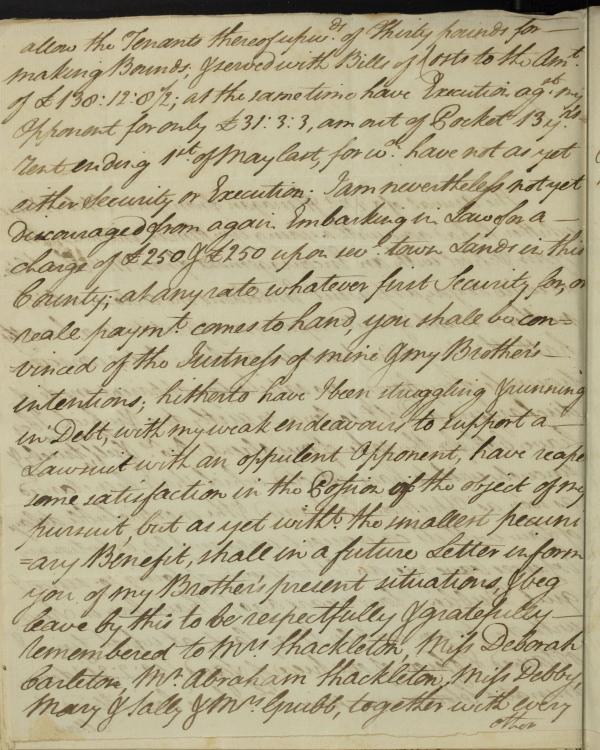 allow the Tenants thereof upwds. of Thirty pounds for
making Bounds, & served with Bills of Costs to the Amt.
of £138: 12: 8½; at the same time have Execution agst. my
Opponent for only £31: 3: 3, am out of Pocket 13 yrs.
rent ending 1st. of May last, for wch. have not as yet
either Security or Execution; I am nevertheless not yet
discouraged from again Embarking in Law for a
charge of £250 & £250 upon sevl. town Lands in this
County; at any rate whatever first Security for, or
reale paymt. comes to hand, you shall be con=
vinced of the Justness of mine & my Brother's
intentions; hitherto have I been struggling & running
in Debt, with my weak endeavours to support a
Lawsuit with an oppulent Opponent, have reape
some satisfaction in the Possion of the object of my
pursuit, but as yet witht. the smallest pecuni
=ary Benefit, shall in a future Letter inform
you of my Brother's present situations, & beg
leave by this to be respectfully & gratefully
remembered to Mrs Shackleton, Miss Deborah
Carleton, Mr. Abraham Shackleton, Miss Debby,
Mary & Sally & Mrs Grubb, together with every
other